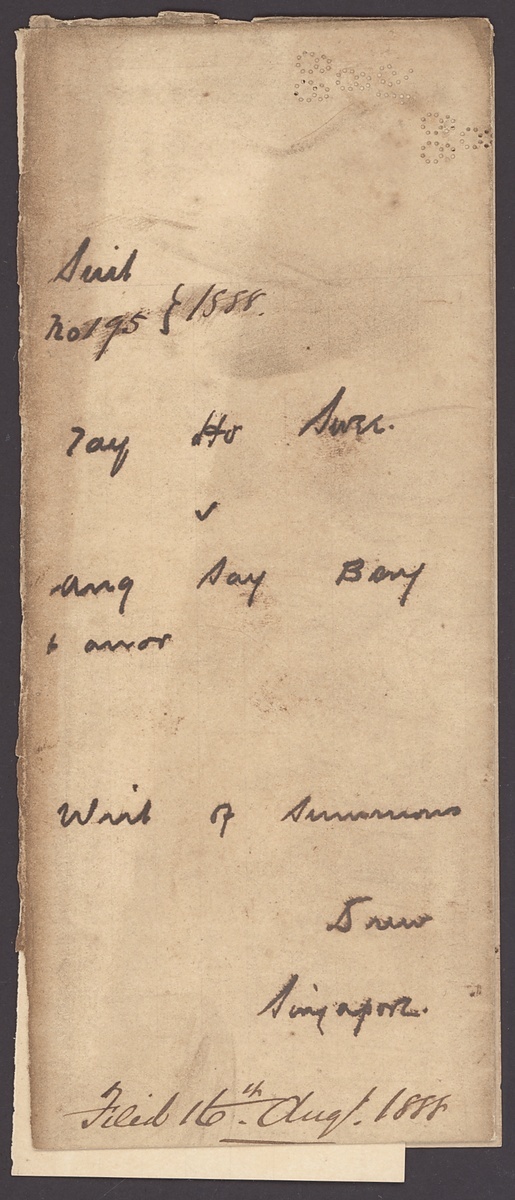 Suit
No 195 } 1888.
Tay Ho Swee.
v
Ang Say Beng
& anor
Writ of Summons
Drew
Singapore.
Filed 16th. Augt. 1888